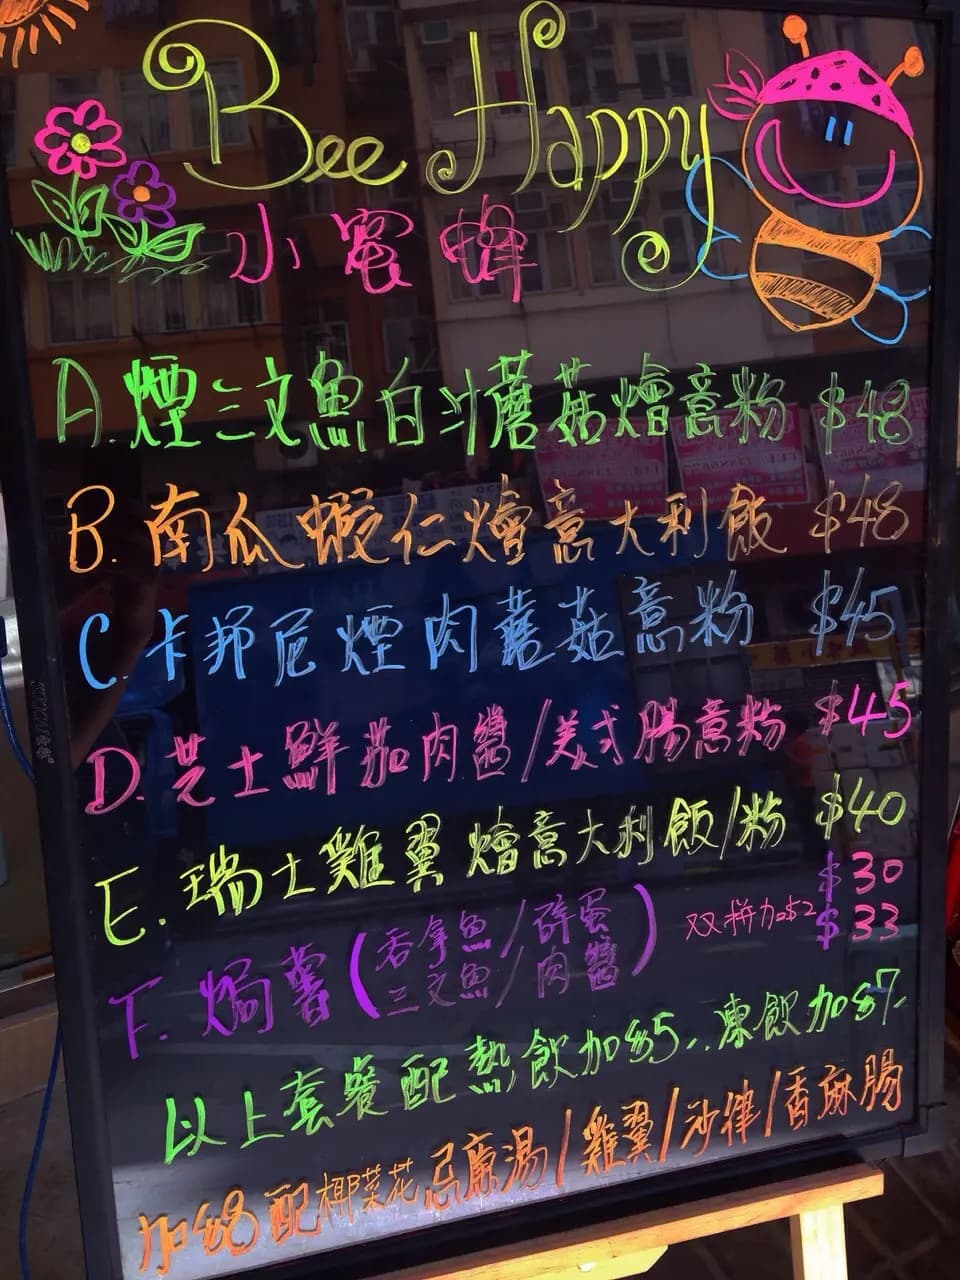 Bee Happy
小蜜蜂
A. 煙三文魚白汁蘑菇燴意粉 $48
B. 南瓜蝦仁燴意大利飯 $48
C. 卡邦尼煙肉蘑菇意粉 $45
D. 芝士鮮茄肉醬/美式腸意粉 $45
E. 瑞士雞翼燴意大利飯/粉 $40
F. 焗薯(吞拿魚/碎蛋 三文魚/肉醬) $30
双拼加$2 $33
以上套餐配熱飲加$5,.凍飲加$7.
加$8配椰菜花忌廉湯/雞翼/沙律/香麻腸